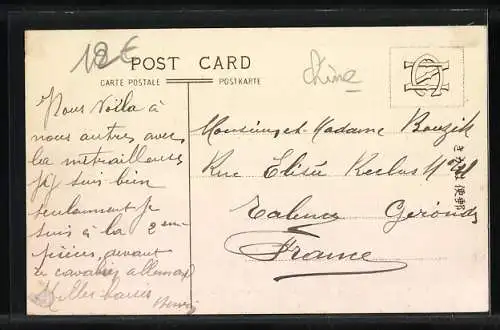 18€
POST CARD
CARTE POSTALE
POSTKARTE
chine
Nous Voëla à
nous autres avec
les mitrailleuses
suis bien
seulement je
suis à la 2 em
pièces, devant
le cavalier allemand
Milles baisés
Monsieur et Madame Bouzik
Rue Elisée Reclus Nº 21
Talence Gironde
France
きがは便郵